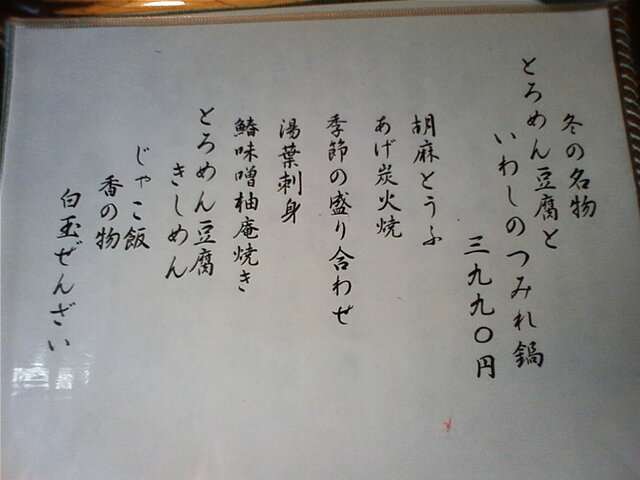 冬の名物
とろめん豆腐と
いわしのつみれ鍋
三九九〇円
胡麻とうふ
あげ炭火焼
季節の盛り合わせ
湯葉刺身
鰆味噌柚庵焼き
とろめん豆腐
きしめん
じゃこ飯
香の物
白玉ぜんざい